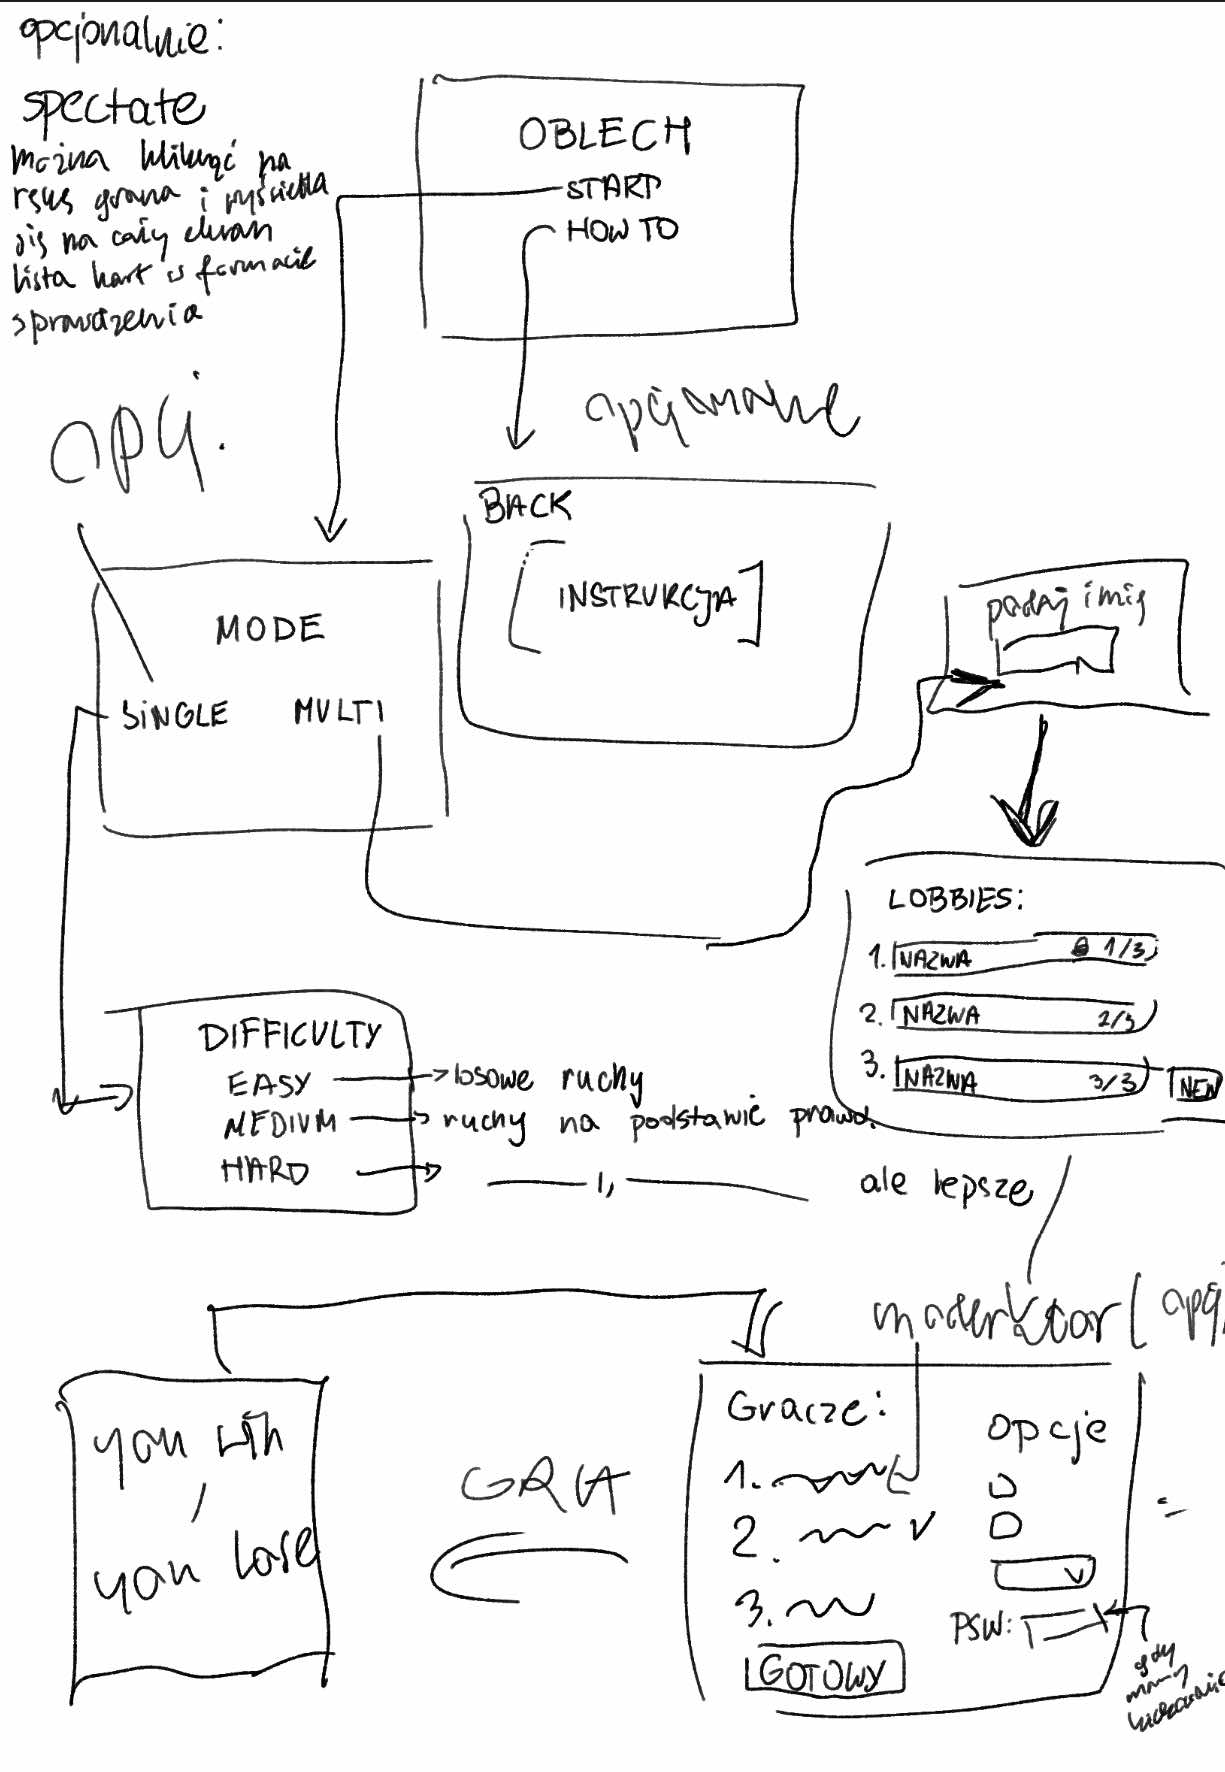 opcjonalnie:
spectate
można kliknąć na
rękę gracza i wyświetla
się na cały ekran
lista kart w formacie
sprawdzenia
OBLECH
START
HOW TO
opcj.
opcjonalne
BACK
INSTRUKCJA
MODE
SINGLE MULTI
podaj imię
LOBBIES:
1. NAZWA 1/3
2. NAZWA 2/3
3. NAZWA 3/3
NEW
DIFFICULTY
EASY → losowe ruchy
MEDIUM → ruchy na podstawie prawd.
HARD → —— 11 —— ale lepsze
opcj.
you win
/
you lose
GRA
Gracze:
1.
2. v
3.
GOTOWY
opcje
PSW:
gdy
mamy